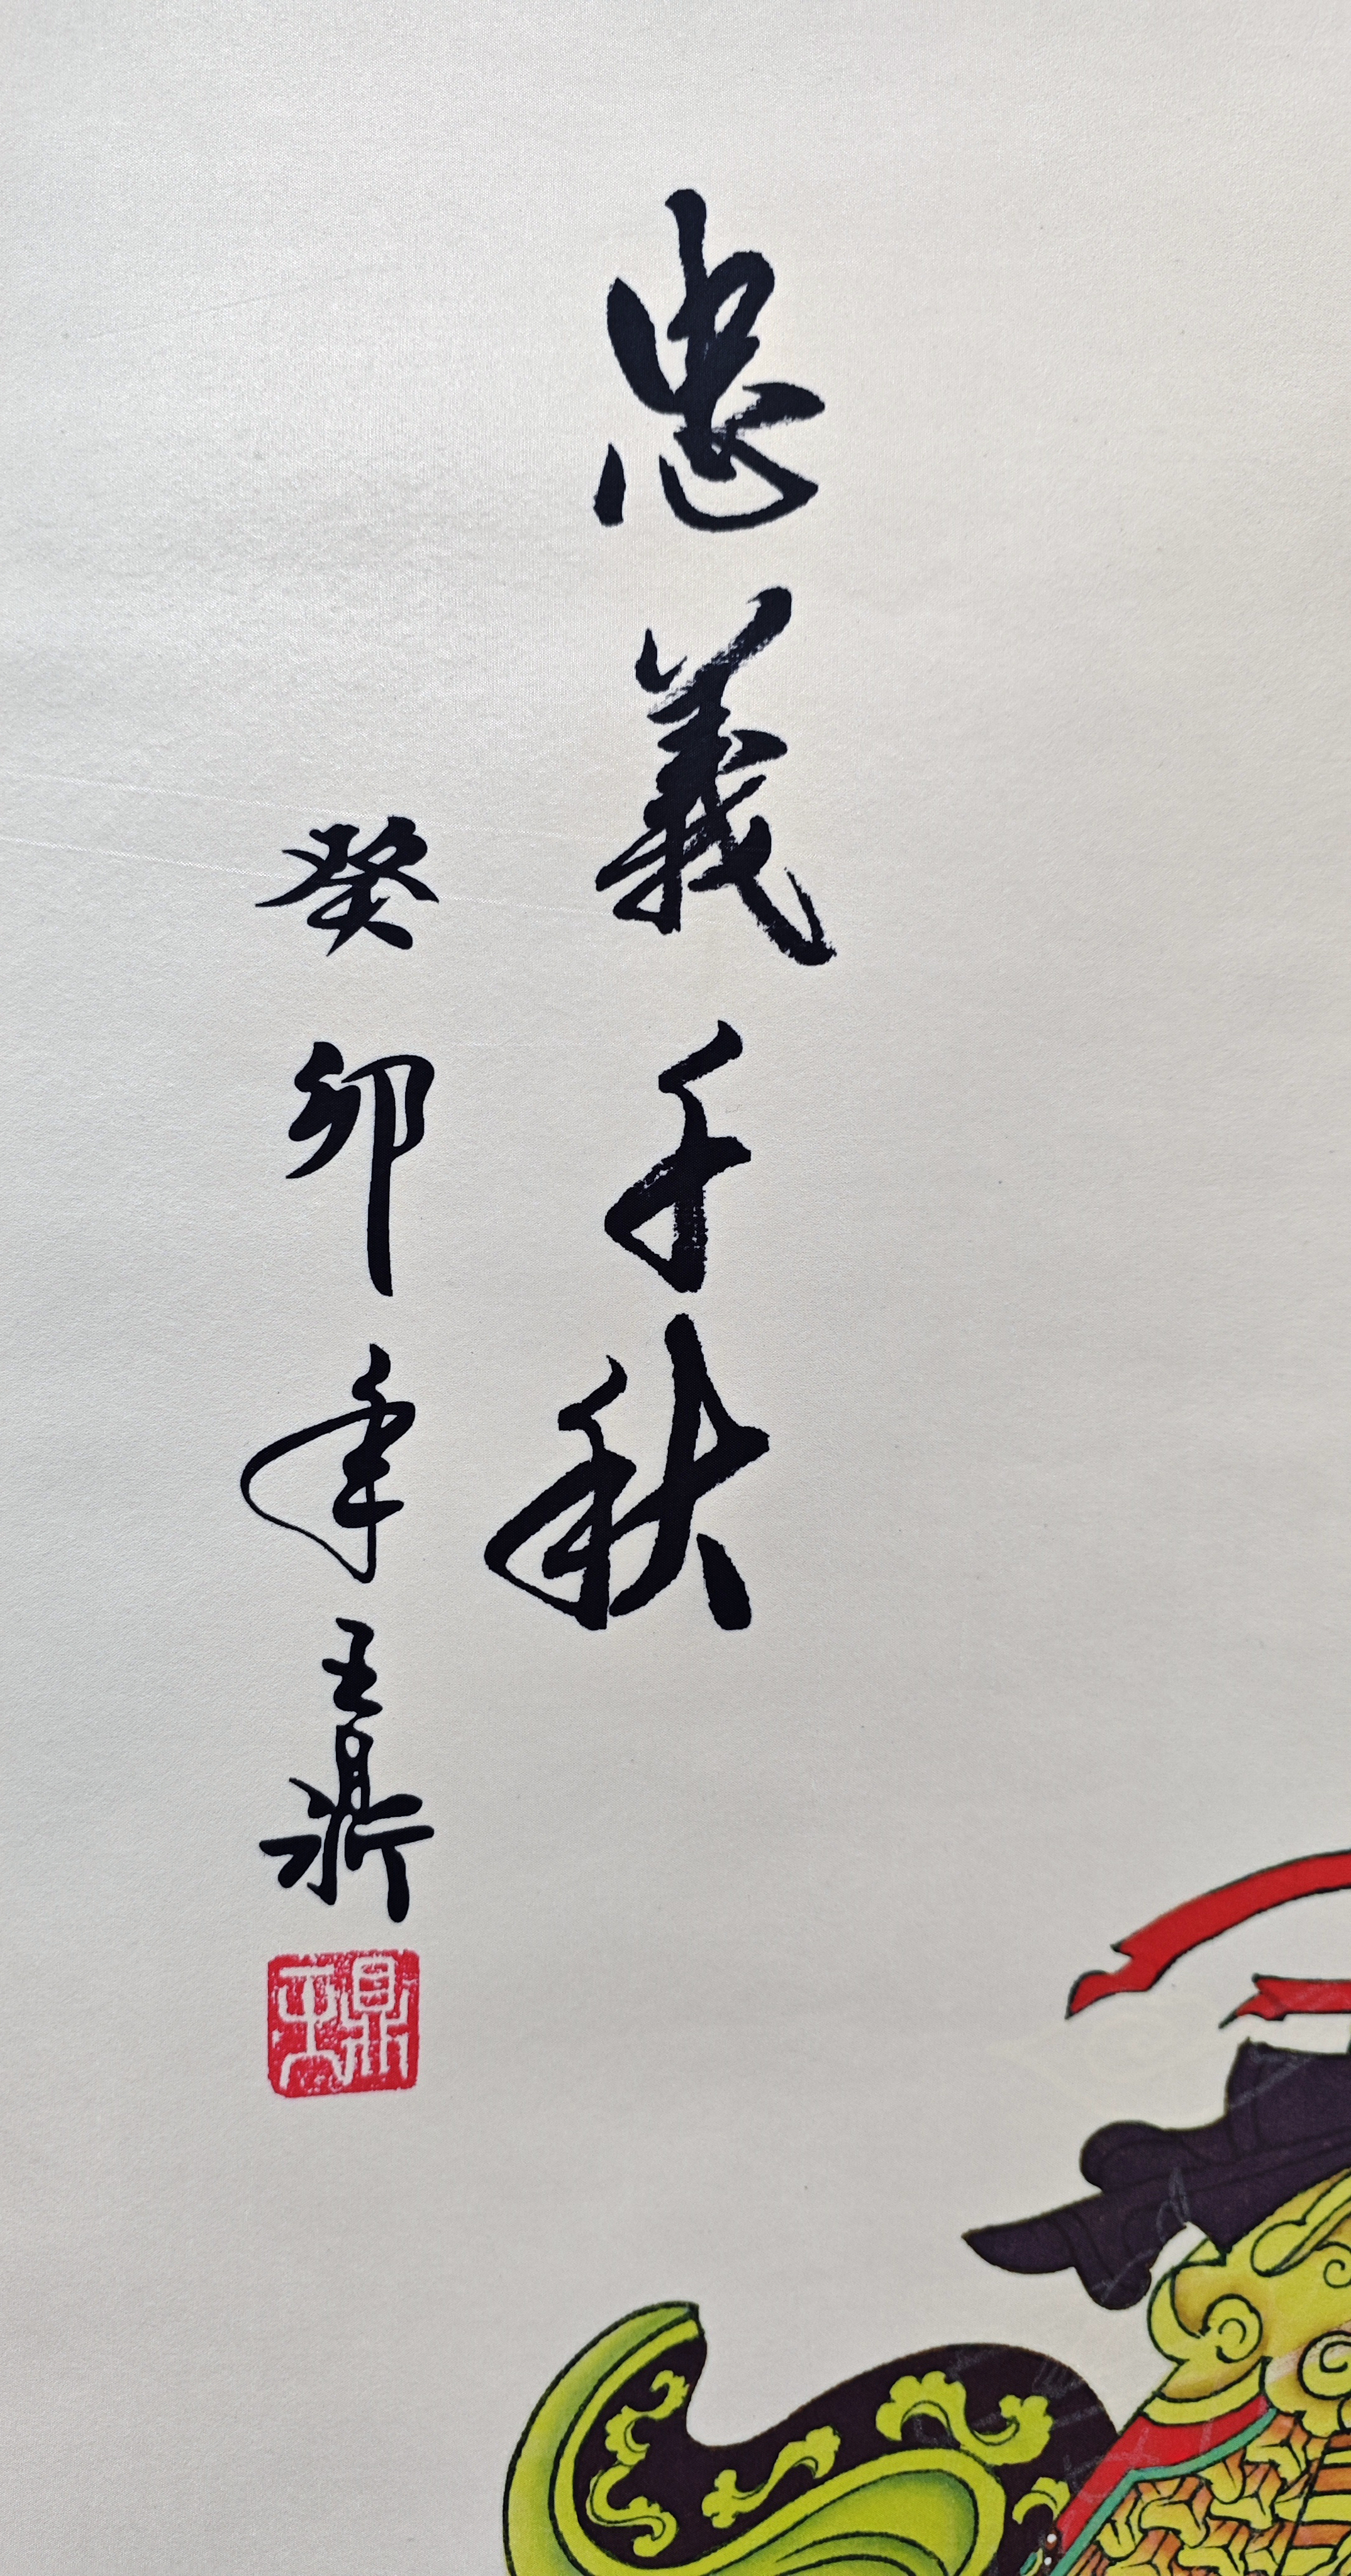 忠義千秋
癸卯年王鼎